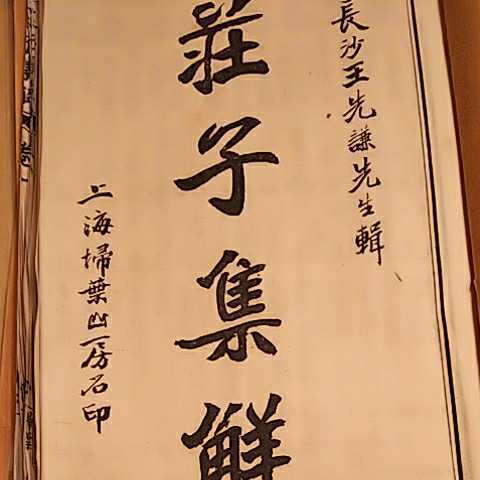 長沙王先謙先生輯
莊子集解
上海掃葉山房石印